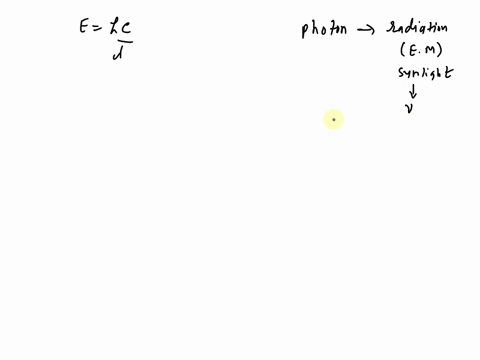 E = hc/λ
photon → radiation
(E.M)
sunlight
↓
ν